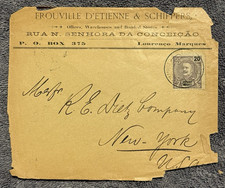 FROUVILLE D'ETIENNE & SCHIPPERS
Offices, Warehouses and Retail Stores
RUA N. SENHORA DA CONCEIÇÃO
P. O. BOX 375 Lourenco Marques
20
Messrs
R. E. Dietz Company
New-York
U.S.A